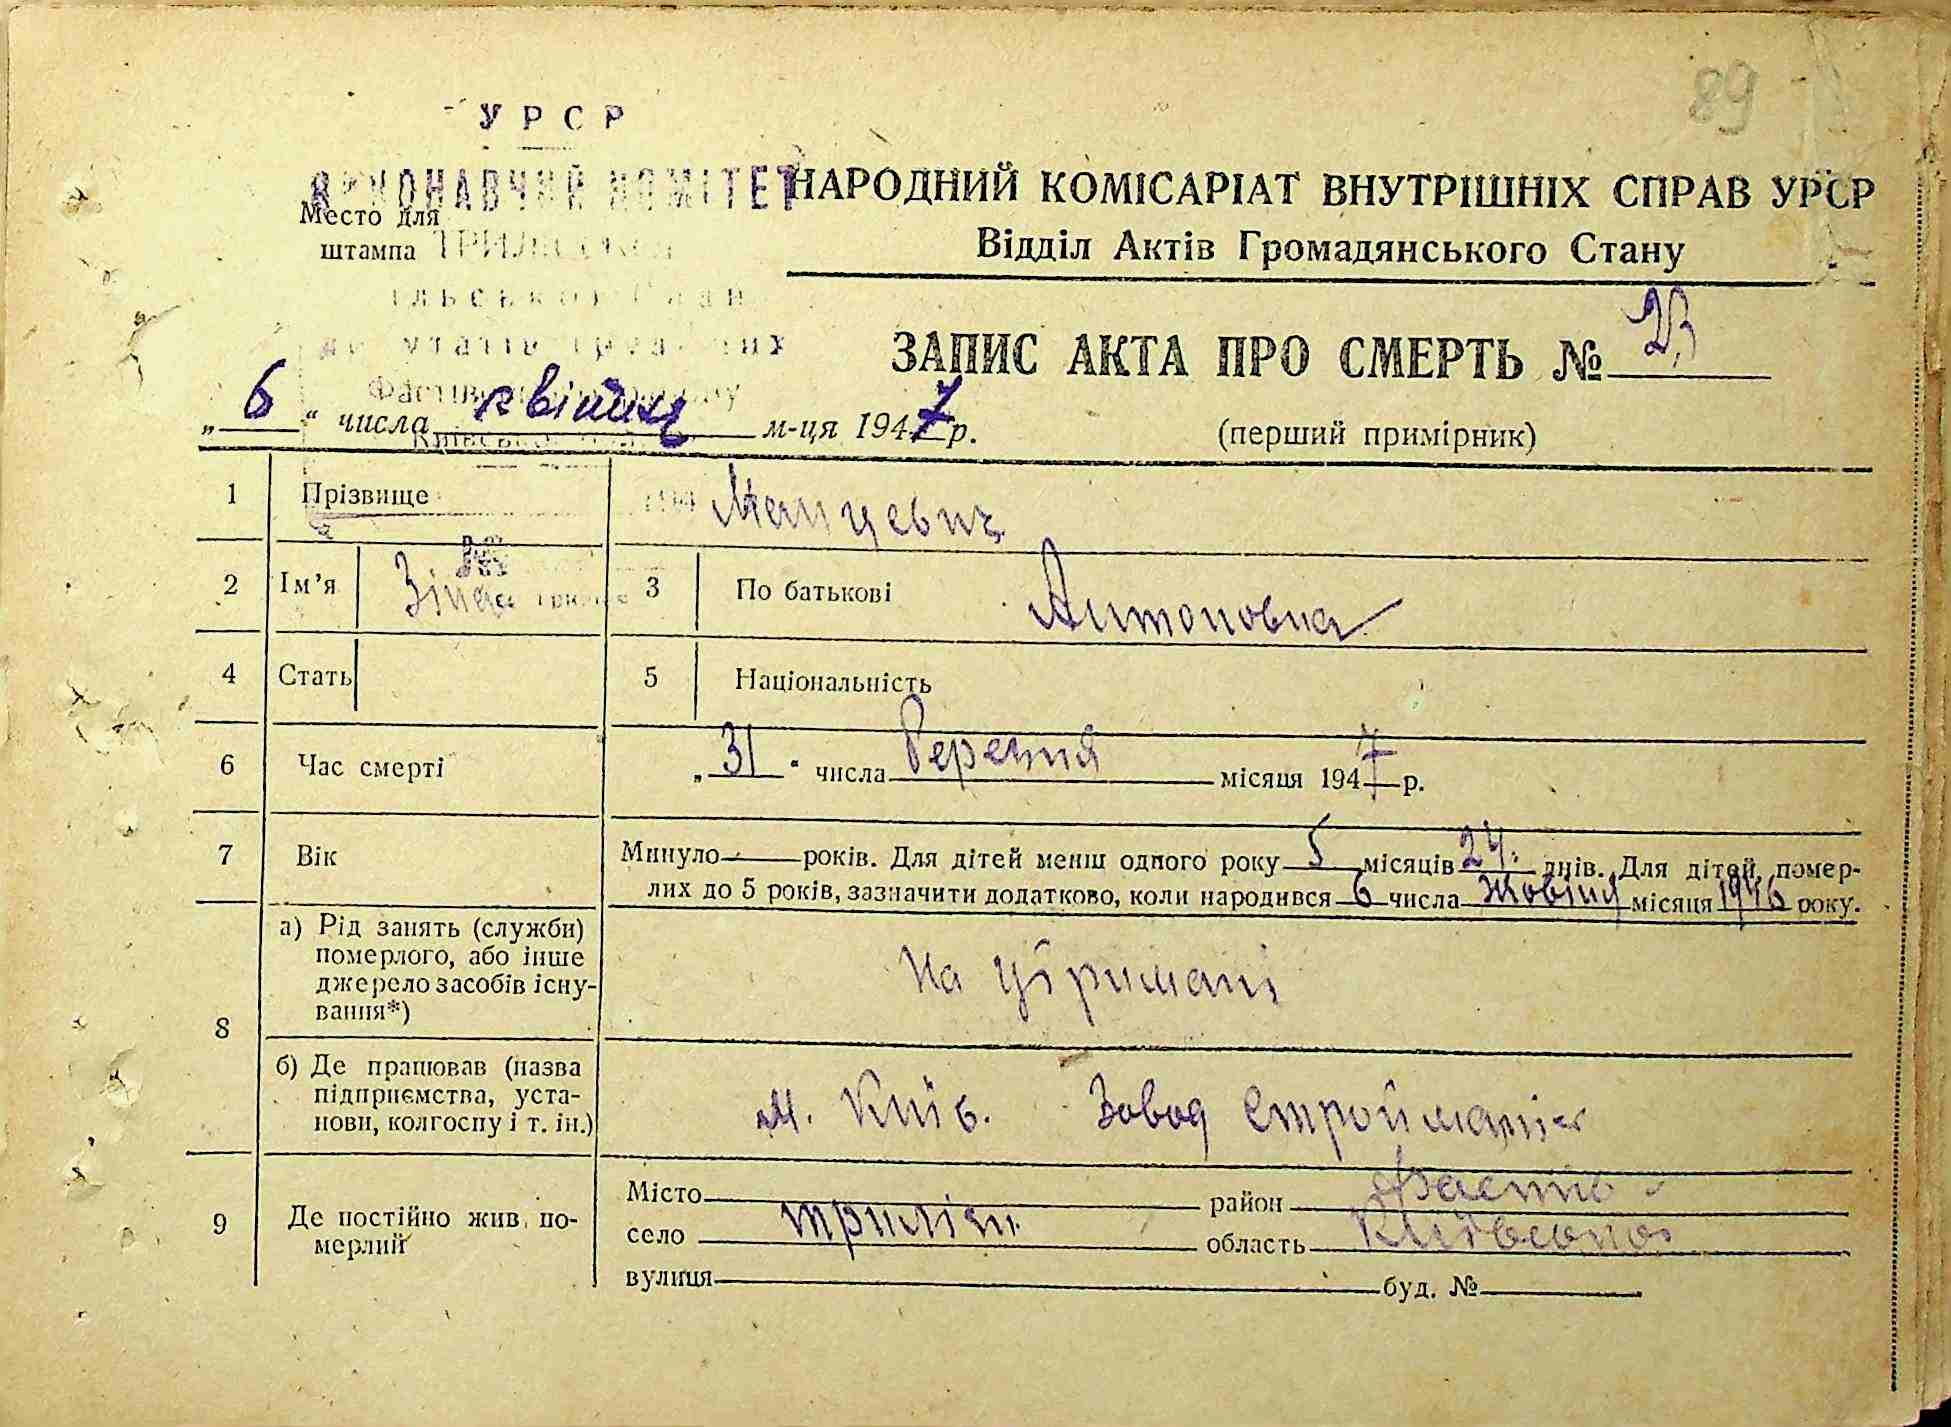 89
УРСР
ВИКОНАВЧИЙ КОМІТЕТ
Место для
штампа
НАРОДНИЙ КОМІСАРІАТ ВНУТРІШНІХ СПРАВ УРСР
Відділ Актів Громадянського Стану
ЗАПИС АКТА ПРО СМЕРТЬ № 23
„ 6 “ числа квітня м-ця 1947 р.
(перший примірник)
1 Прізвище
2 Ім’я Зіна 3 По батькові Антоновна
4 Стать 5 Національність
6 Час смерті „ 31 “ числа березня місяця 1947 р.
7 Вік Минуло — років. Для дітей менш одного року 5 місяців 24 днів. Для дітей, помер-
лих до 5 років, зазначити додатково, коли народився 6 числа жовтня місяця 1946 року.
8 а) Рід занять (служби)
померлого, або інше
джерело засобів існу-
вання*)
на утримані
б) Де працював (назва
підприємства, уста-
нови, колгоспу і т. ін.)
м. Київ. Завод
9 Де постійно жив по-
мерлий
Місто район
село Триліси область
вулиця буд. №